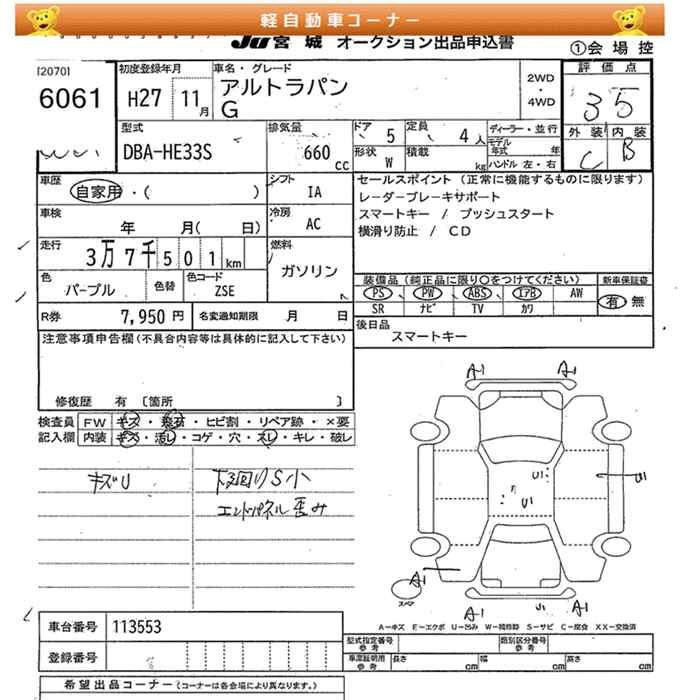 軽自動車コーナー
JU宮城 オークション出品申込書
①会場控
[2070]
6061
初度登録年月
H27 11月
車名・グレード
アルトラパン
G
2WD
・
4WD
評価点
3.5
外装 内装
C B
型式
DBA-HE33S
排気量
660cc
ドア 5
定員 4人
形状 W
積載 kg
ディーラー・並行
モデル年式 年
ハンドル 左・右
車歴
自家用・( )
シフト
IA
車検
年 月( 日)
冷房
AC
走行
3万7千501km
燃料
ガソリン
色
パープル
色替
色コード
ZSE
R券 7,950円
名変通知期限 月 日
セールスポイント (正常に機能するものに限ります)
レーダーブレーキサポート
スマートキー / プッシュスタート
横滑り防止 / CD
装備品 (純正品に限り〇をつけてください)
新車保証書
PS PW ABS エアB AW
有 無
SR ナビ TV カワ
後日品
スマートキー
注意事項申告欄 (不具合内容等は具体的に記入して下さい)
修復歴 有 〔箇所 〕
検査員記入欄
FW キズ・飛石・ヒビ割・リペア跡・×要
内装 キズ・汚レ・コゲ・穴・スレ・キレ・破レ
キズU
下廻りS小
エンドパネル歪み
A1 A1
U1
U1
U1
A1
スペア
A1 U1 A1
A−キズ E−エクボ U−凹み W−補修跡 S−サビ C−腐食 XX−交換済
車台番号 113553
登録番号
型式指定番号 参考
類別区分番号 参考
車庫証明用 参考
長さ cm 幅 cm 高さ cm
希望出品コーナー (コーナーは各会場により異なります。)